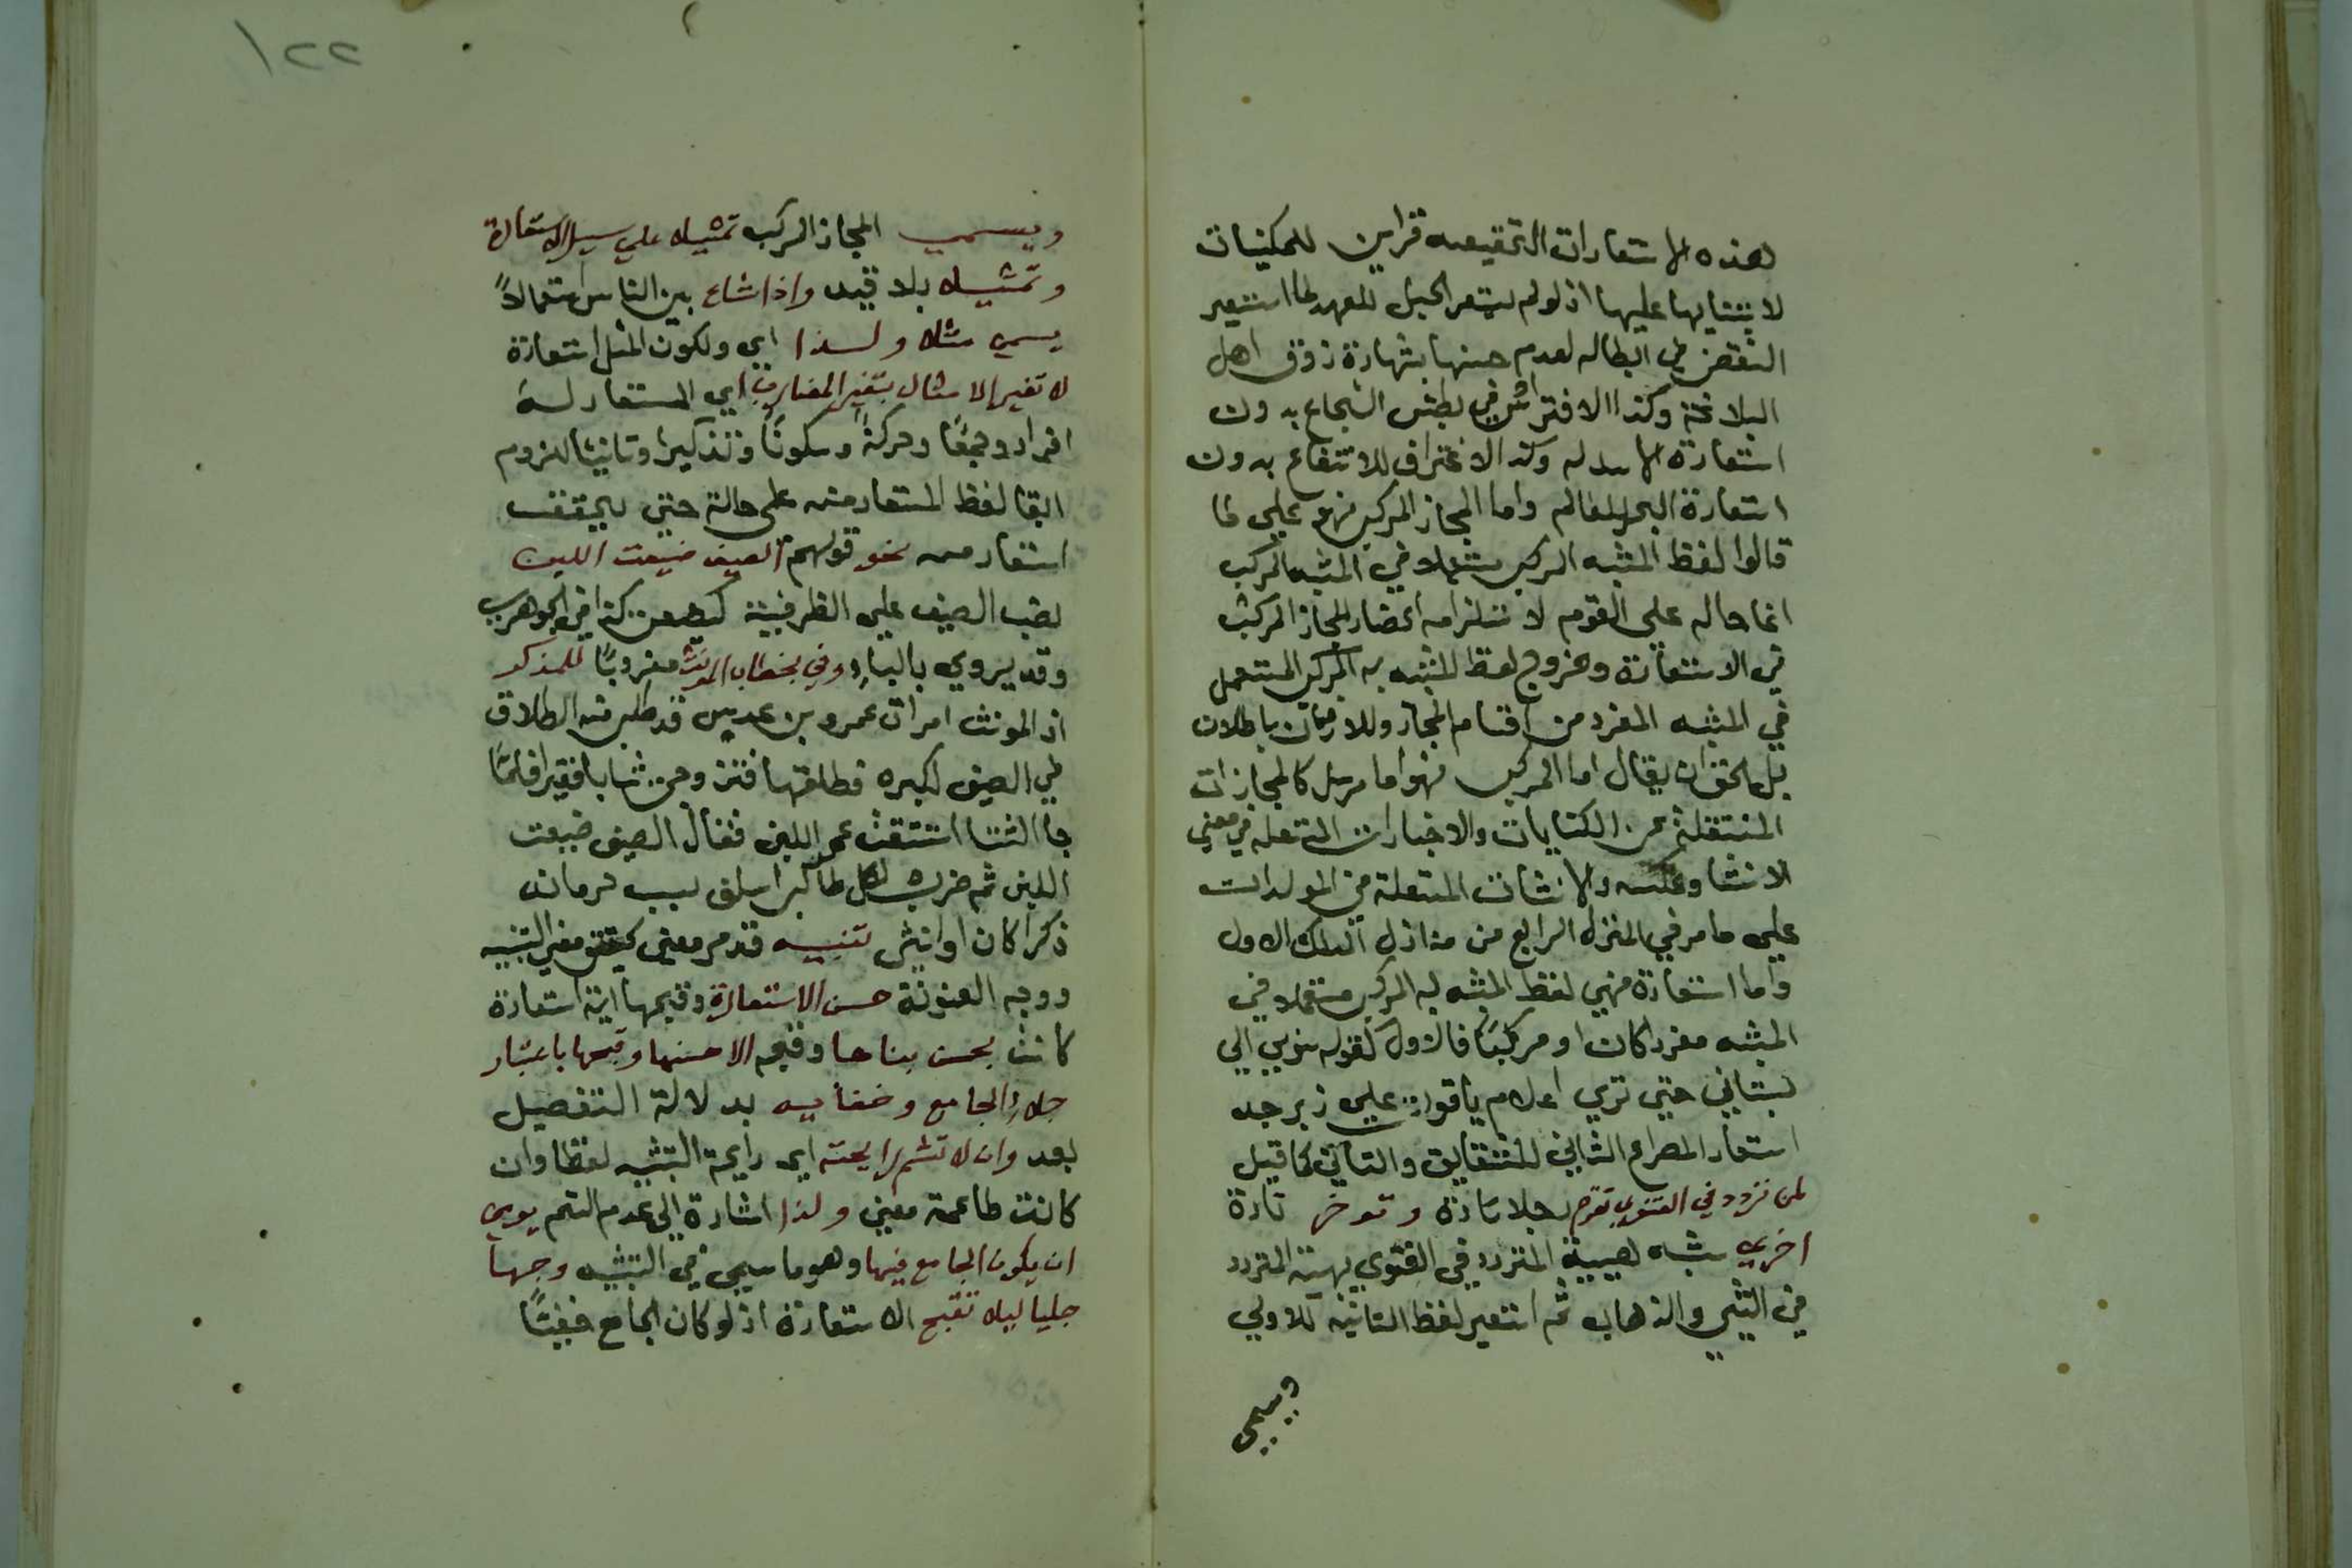 هذه الاستعارات التحقيقيه قراين للمكنيات
لابتنايها عليها اذ لو لم يستعر الحبل للعهد لما استعير
النقض في ابطاله لعدم حسنها بشهادة ذوق اهل
البلاغة وكذا الافتراس في بطش الشجاع بدون
استعارة الاسد له وكذا الاغتراف للانتفاع بدون
استعارة البحر للعالم واما المجاز المركب فهو علي ما
قالوا لفظ المشبه المركب مستعملا في المشبه المركب
انما حاله علي القوم لاستلزامه انحصار المجاز المركب
في الاستعارة وخروج لفظ المشبه به المركب المستعمل
في المشبه المفرد من اقسام المجاز واللازمان باطلان
بل الحق ان يقال اما المركب فهو اما مرسل كالمجازات
المنتقلة عن الكنايات والاخبارات المستعمله في معني
الانشا وعكسه والانشات المستعملة في المولدات
علي ما مر في المنزل الرابع من منازل الفلك الاول
واما استعارة فهي لفظ المشبه به المركب مستعملا في
المشبه مفردا كان او مركبًا فالاول كقوله سربي الي
بستاني حتي تري اعلام ياقوت علي زبرجد
استعار المصراع الثاني للشقايق والثاني كما قيل
لمن تردد في الفتوي تقدم رجلا تارة وتوخر تارة
اخري شبه هيية المتردد في الفتوي بهيئة المتردد
في المشي والذهاب ثم استعير لفظ الثانيه للاولي
ويسمي
١٢٢
ويسمي المجاز المركب تمثيلا علي سبيل الاستعارة
وتمثيلا بلا قيد واذا شاع بين الناس استعمالاً
يسمي مثلا ولهذا اي ولكون المثل استعارة
لا تغير الامثال بتغير المضارب اي المستعار له
افرادا وجمعًا وحركةً وسكونًا وتذكيرا وتانيثا للزوم
ابقا لفظ المستعار منه علي حاله حتي يتحقق
استعار منه نحو قولهم الصيف ضيعت اللبن
نصب الصيف علي الظرفية كذا في الجوهري
وقد يروي بالباء وفي بخطاب المونث مضروبًا للمذكر
اذ المونث امرات عمرو بن عديس قد طلب منه الطلاق
في الصيف لكبره فطلقها فتزوجت شابا فقيرا فلمّا
جا الشتا استسقت عمرا اللبن فقال الصيف ضيعت
اللبن ثم ضرب لكل طالب اسلف سبب حرمانه
ذكرا كان او انثي تنبيه قد مر معني تحقق معني التنبيه
ووجه العنونة حسن الاستعارة وقبحها اية استعارة
كانت بحسن بناها وقبحه الا حسنها وقبحها باعتبار
جلاء الجامع وخفايه بدلالة التفصيل
بعد وان لا تشم رايحته اي رايحة التشبيه لفظا وان
كانت طاعمة معني ولذا اشارة الي عدم الشم يوصي
ان يكون الجامع فيها وهو ما سمي في التشبيه وجها
جليا ليلا تقبح الاستعارة اذ لو كان الجامع خفيًّا